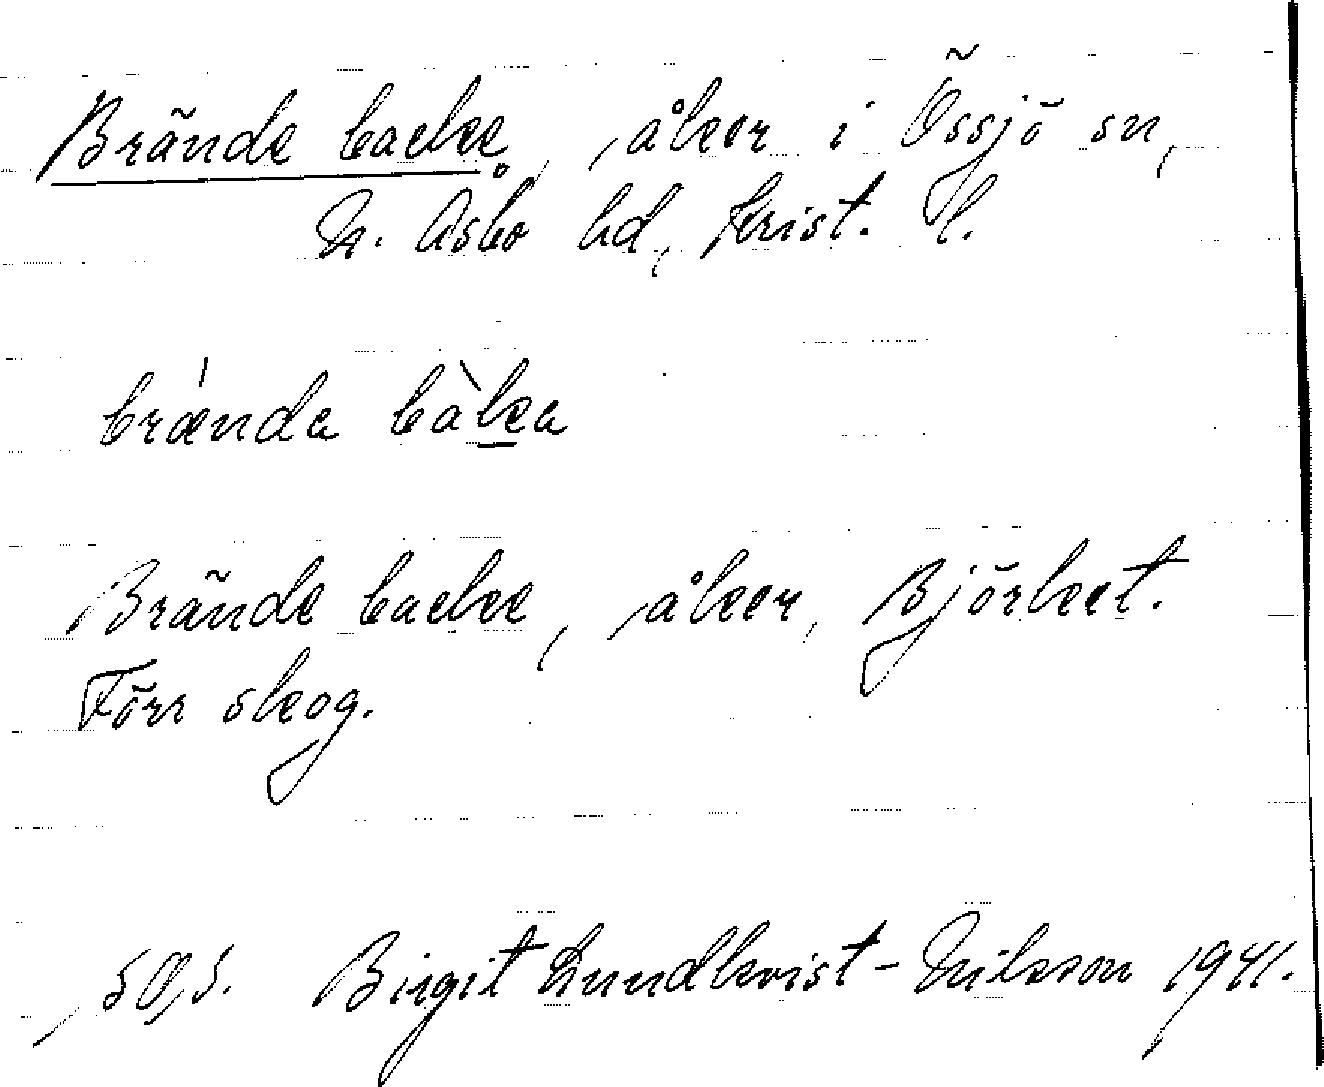 Brände backe, åker i Össjö sn,
N. Åsbo hd, Krist. l.
brǽnda bàka
Brände backe, åker, Björket.
Förr skog.
Birgit Lundkvist-Nilsson 1941.